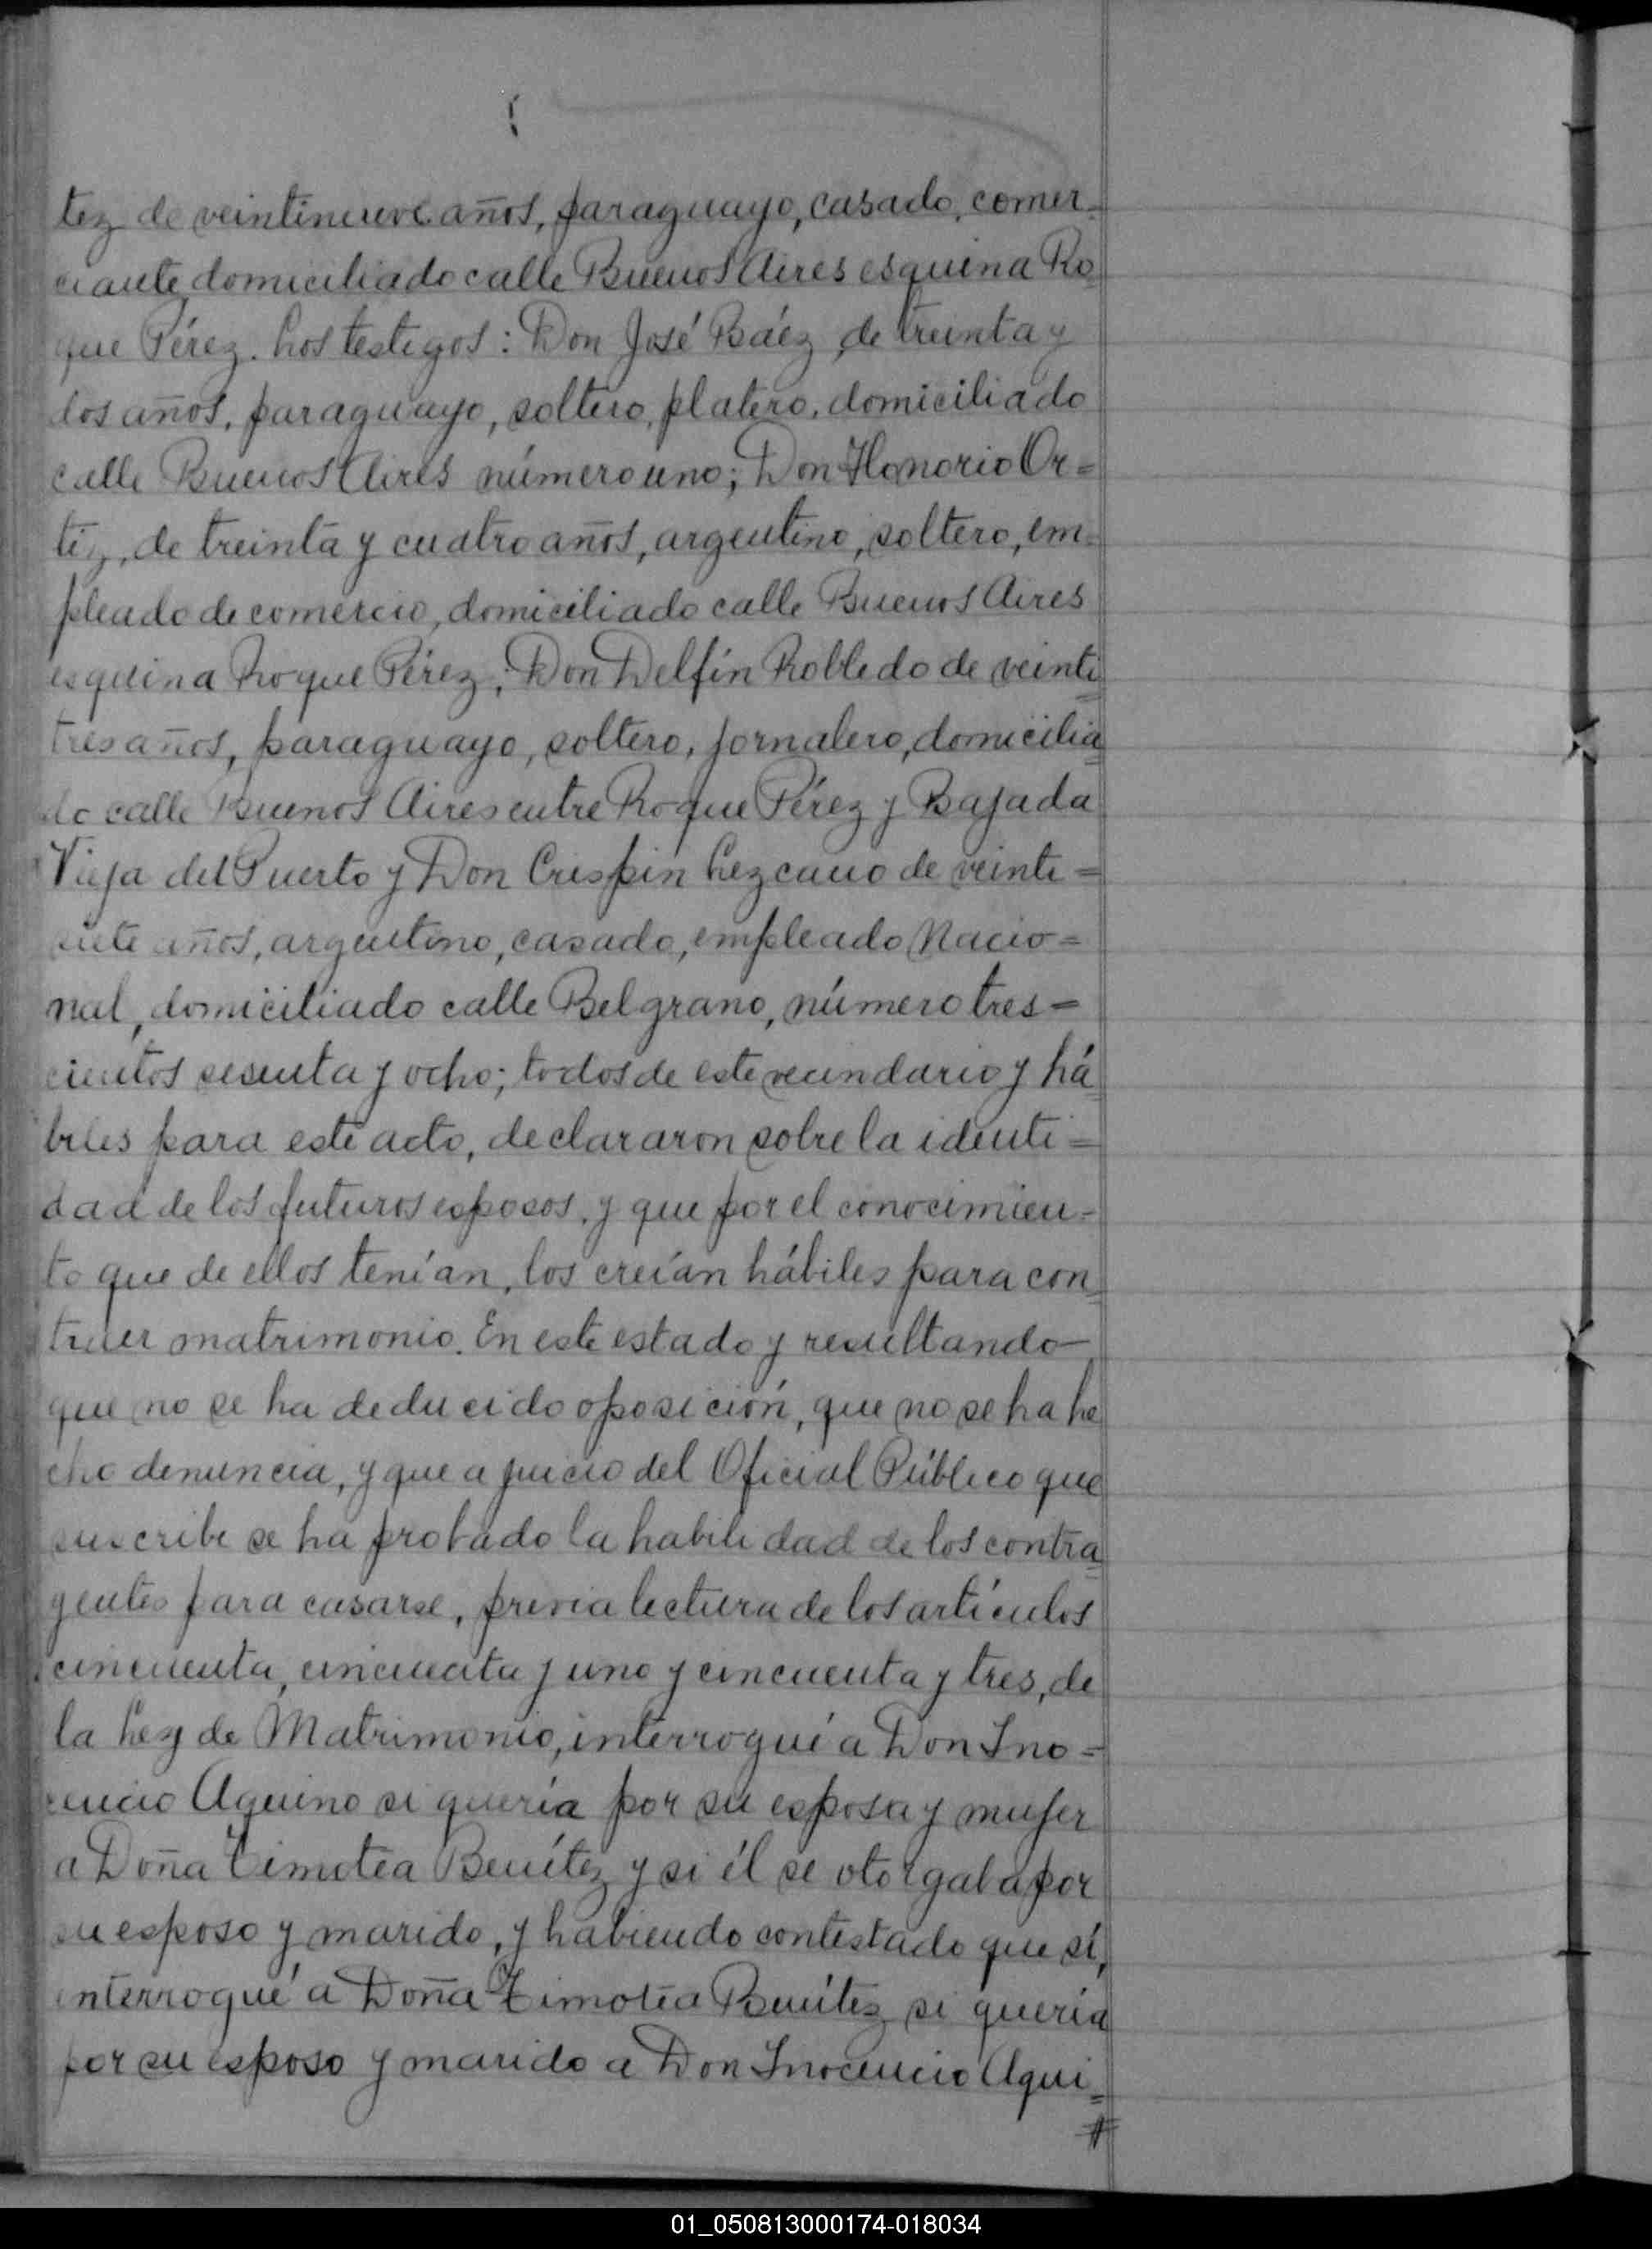 tez de veintinueve años, paraguayo, casado, comer-
ciante domiciliado calle Buenos Aires esquina Ro-
que Pérez. Los testigos: Don José Báez, de treinta y
dos años, paraguayo, soltero, platero, domiciliado
calle Buenos Aires número uno; Don Honorio Or=
tiz, de treinta y cuatro años, argentino, soltero, em=
pleado de comercio, domiciliado calle Buenos Aires
esquina Roque Pérez; Don Delfín Robledo de veinti
tres años, paraguayo, soltero, jornalero, domicilia
do calle Buenos Aires entre Roque Pérez y Bajada
Vieja del Puerto y Don Crispin Lezcano de veinti=
siete años, argentino, casado, empleado Nacio=
nal, domiciliado calle Belgrano, número tres=
cientos sesenta y ocho; todos de este vecindario y há
biles para este acto, declararon sobre la identi=
dad de los futuros esposos, y que por el conocimien-
to que de ellos tenían, los creían hábiles para con
traer matrimonio. En este estado y resultando
que no se ha deducido oposición, que no se ha he
cho denuncia, y que a juicio del Oficial Público que
suscribe se ha probado la habilidad de los contra
yentes para casarse, previa lectura de los artículos
cincuenta, cincuenta y uno y cincuenta y tres, de
la Ley de Matrimonio, interrogué a Don Ino=
cencio Aquino si quería por su esposa y mujer
a Doña Timotea Benítez y si él se otorgaba por
su esposo y marido, y habiendo contestado que sí,
interrogué a Doña Timotea Benítez si quería
por su esposo y marido a Don Inocencio Aqui=
#
01_050813000174-018034